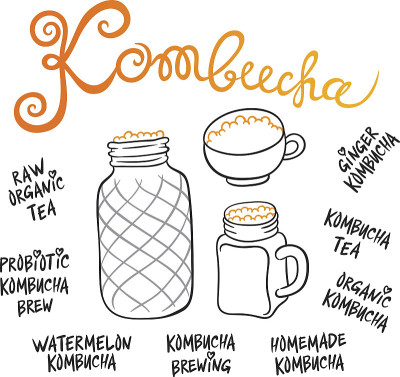 Kombucha
RAW
ORGANIC
TEA
PROBIOTIC
KOMBUCHA
BREW
WATERMELON
KOMBUCHA
KOMBUCHA
BREWING
HOMEMADE
KOMBUCHA
ORGANIC
KOMBUCHA
KOMBUCHA
TEA
GINGER
KOMBUCHA